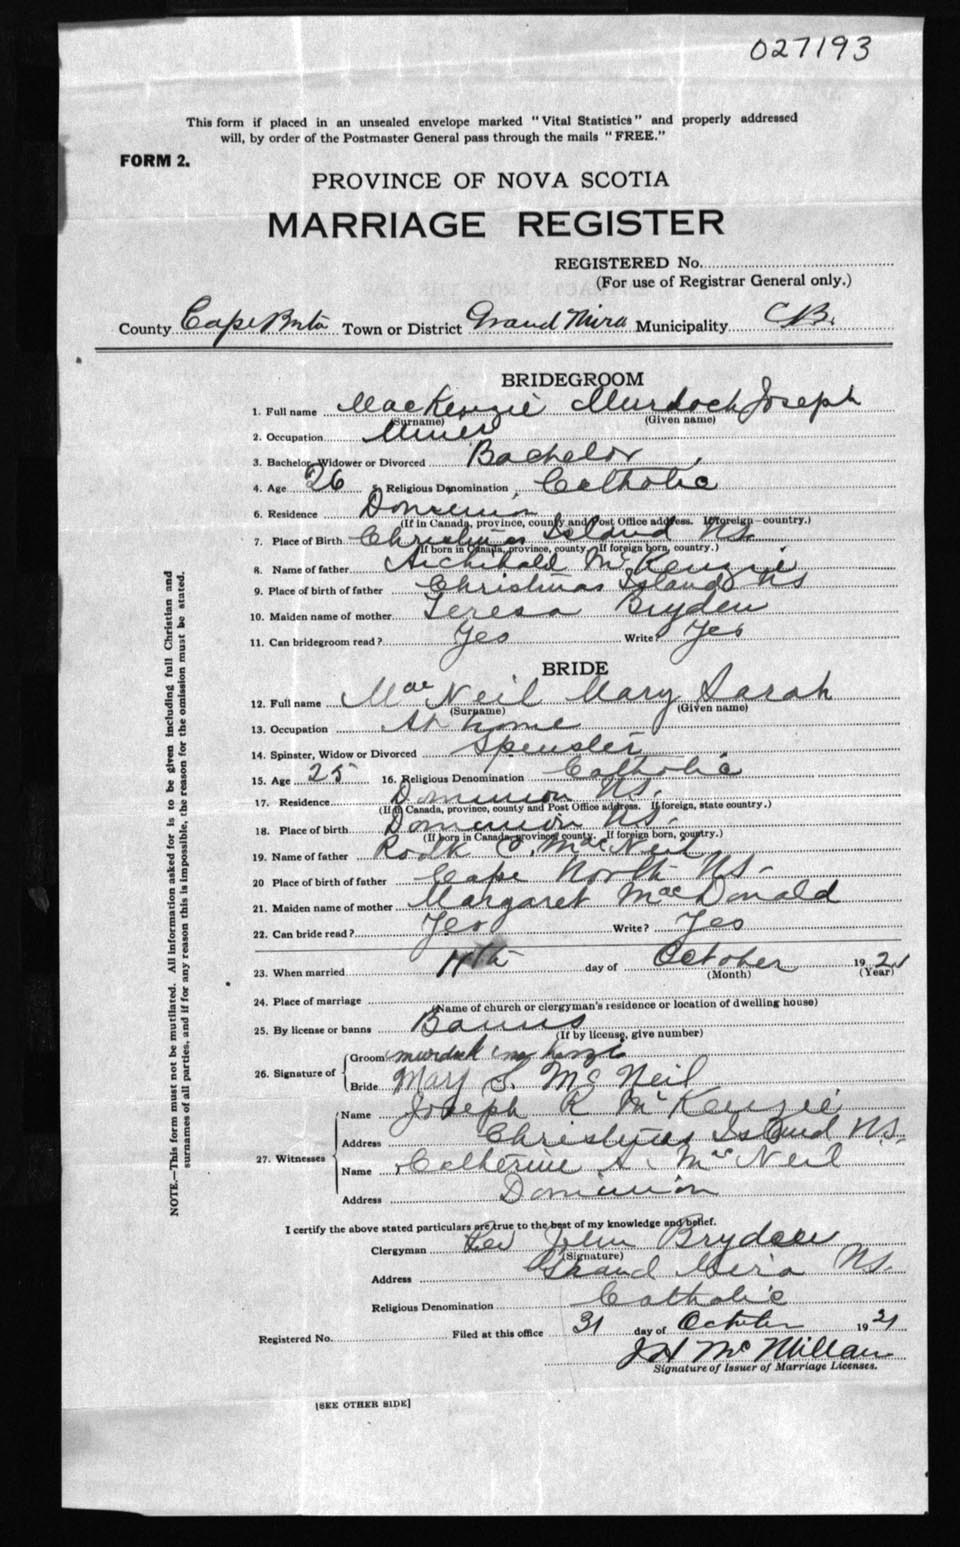 027193
This form if placed in an unsealed envelope marked "Vital Statistics" and properly addressed
will, by order of the Postmaster General pass through the mails "FREE."
FORM 2.
PROVINCE OF NOVA SCOTIA
MARRIAGE REGISTER
REGISTERED No.
(For use of Registrar General only.)
County Cape Breton Town or District Grand Mira Municipality C.B.
BRIDEGROOM
1. Full name MacKenzie Murdoch Joseph
(Surname) (Given name)
2. Occupation Miner
3. Bachelor, Widower or Divorced Bachelor
4. Age 26 5. Religious Denomination Catholic
6. Residence Dominion
(If in Canada, province, county and Post Office address. If foreign—country.)
7. Place of Birth Christmas Island N.S.
(If born in Canada, province, county. If foreign born, country.)
8. Name of father Archibald McKenzie
9. Place of birth of father Christmas Island N.S
10. Maiden name of mother Teresa Bryden
11. Can bridegroom read? Yes Write? Yes
BRIDE
12. Full name MacNeil Mary Sarah
(Surname) (Given name)
13. Occupation At home
14. Spinster, Widow or Divorced Spinster
15. Age 25 16. Religious Denomination Catholic
17. Residence Dominion N.S.
(If in Canada, province, county and Post Office address. If foreign, state country.)
18. Place of birth Dominion N.S.
(If born in Canada, province, county. If foreign born, country.)
19. Name of father MacNeil
20 Place of birth of father Cape North N.S.
21. Maiden name of mother Margaret MacDonald
22. Can bride read? Yes Write? Yes
23. When married day of October 1921
(Month) (Year)
24. Place of marriage
(Name of church or clergyman's residence or location of dwelling house)
25. By license or banns Banns
(If by license, give number)
26. Signature of
Groom murdock
Bride Mary S. McNeil
27. Witnesses
Name Joseph R McKenzie
Address Christmas Island N.S.
Name Catherine A. McNeil
Address Dominion
I certify the above stated particulars are true to the best of my knowledge and belief.
Clergyman Rev John Bryden
(Signature)
Address Grand Mira N.S.
Religious Denomination Catholic
Registered No. Filed at this office 31 day of October 1921
J H McMillan
Signature of Issuer of Marriage Licenses.
[SEE OTHER SIDE]
NOTE.—This form must not be mutilated. All information asked for is to be given including full Christian and
surnames of all parties, and if for any reason this is impossible, the reason for the omission must be stated.